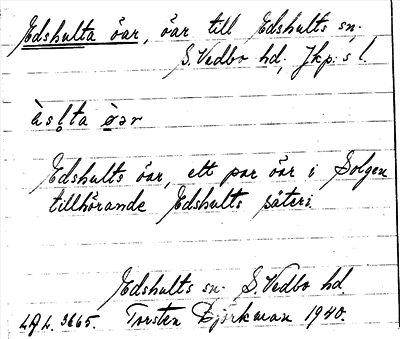 Edshulta öar, öar till Edshults sn.
S. Vedbo hd, Jkp:s l.
àsl̥ta ò̤ər
Edshults öar, ett par öar i Solgen
tillhörande Edshults säteri.
Edshults sn. S. Vedbo hd.
LAL. 3665. Torsten Björkman 1940.